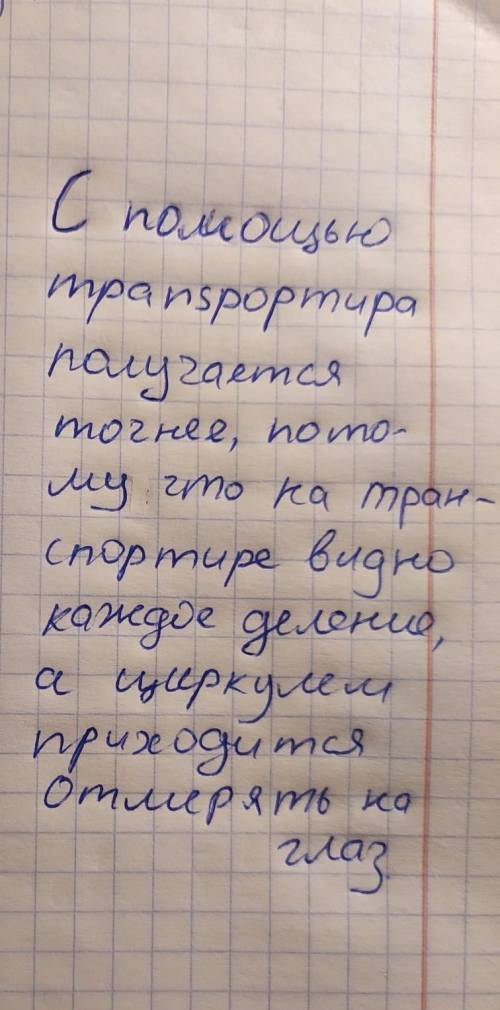 С помощью
трапѕрортира
получается
точнее, пото-
му что на тран-
спортире видно
каждое деление,
а циркулем
приходится
отмерять на
глаз